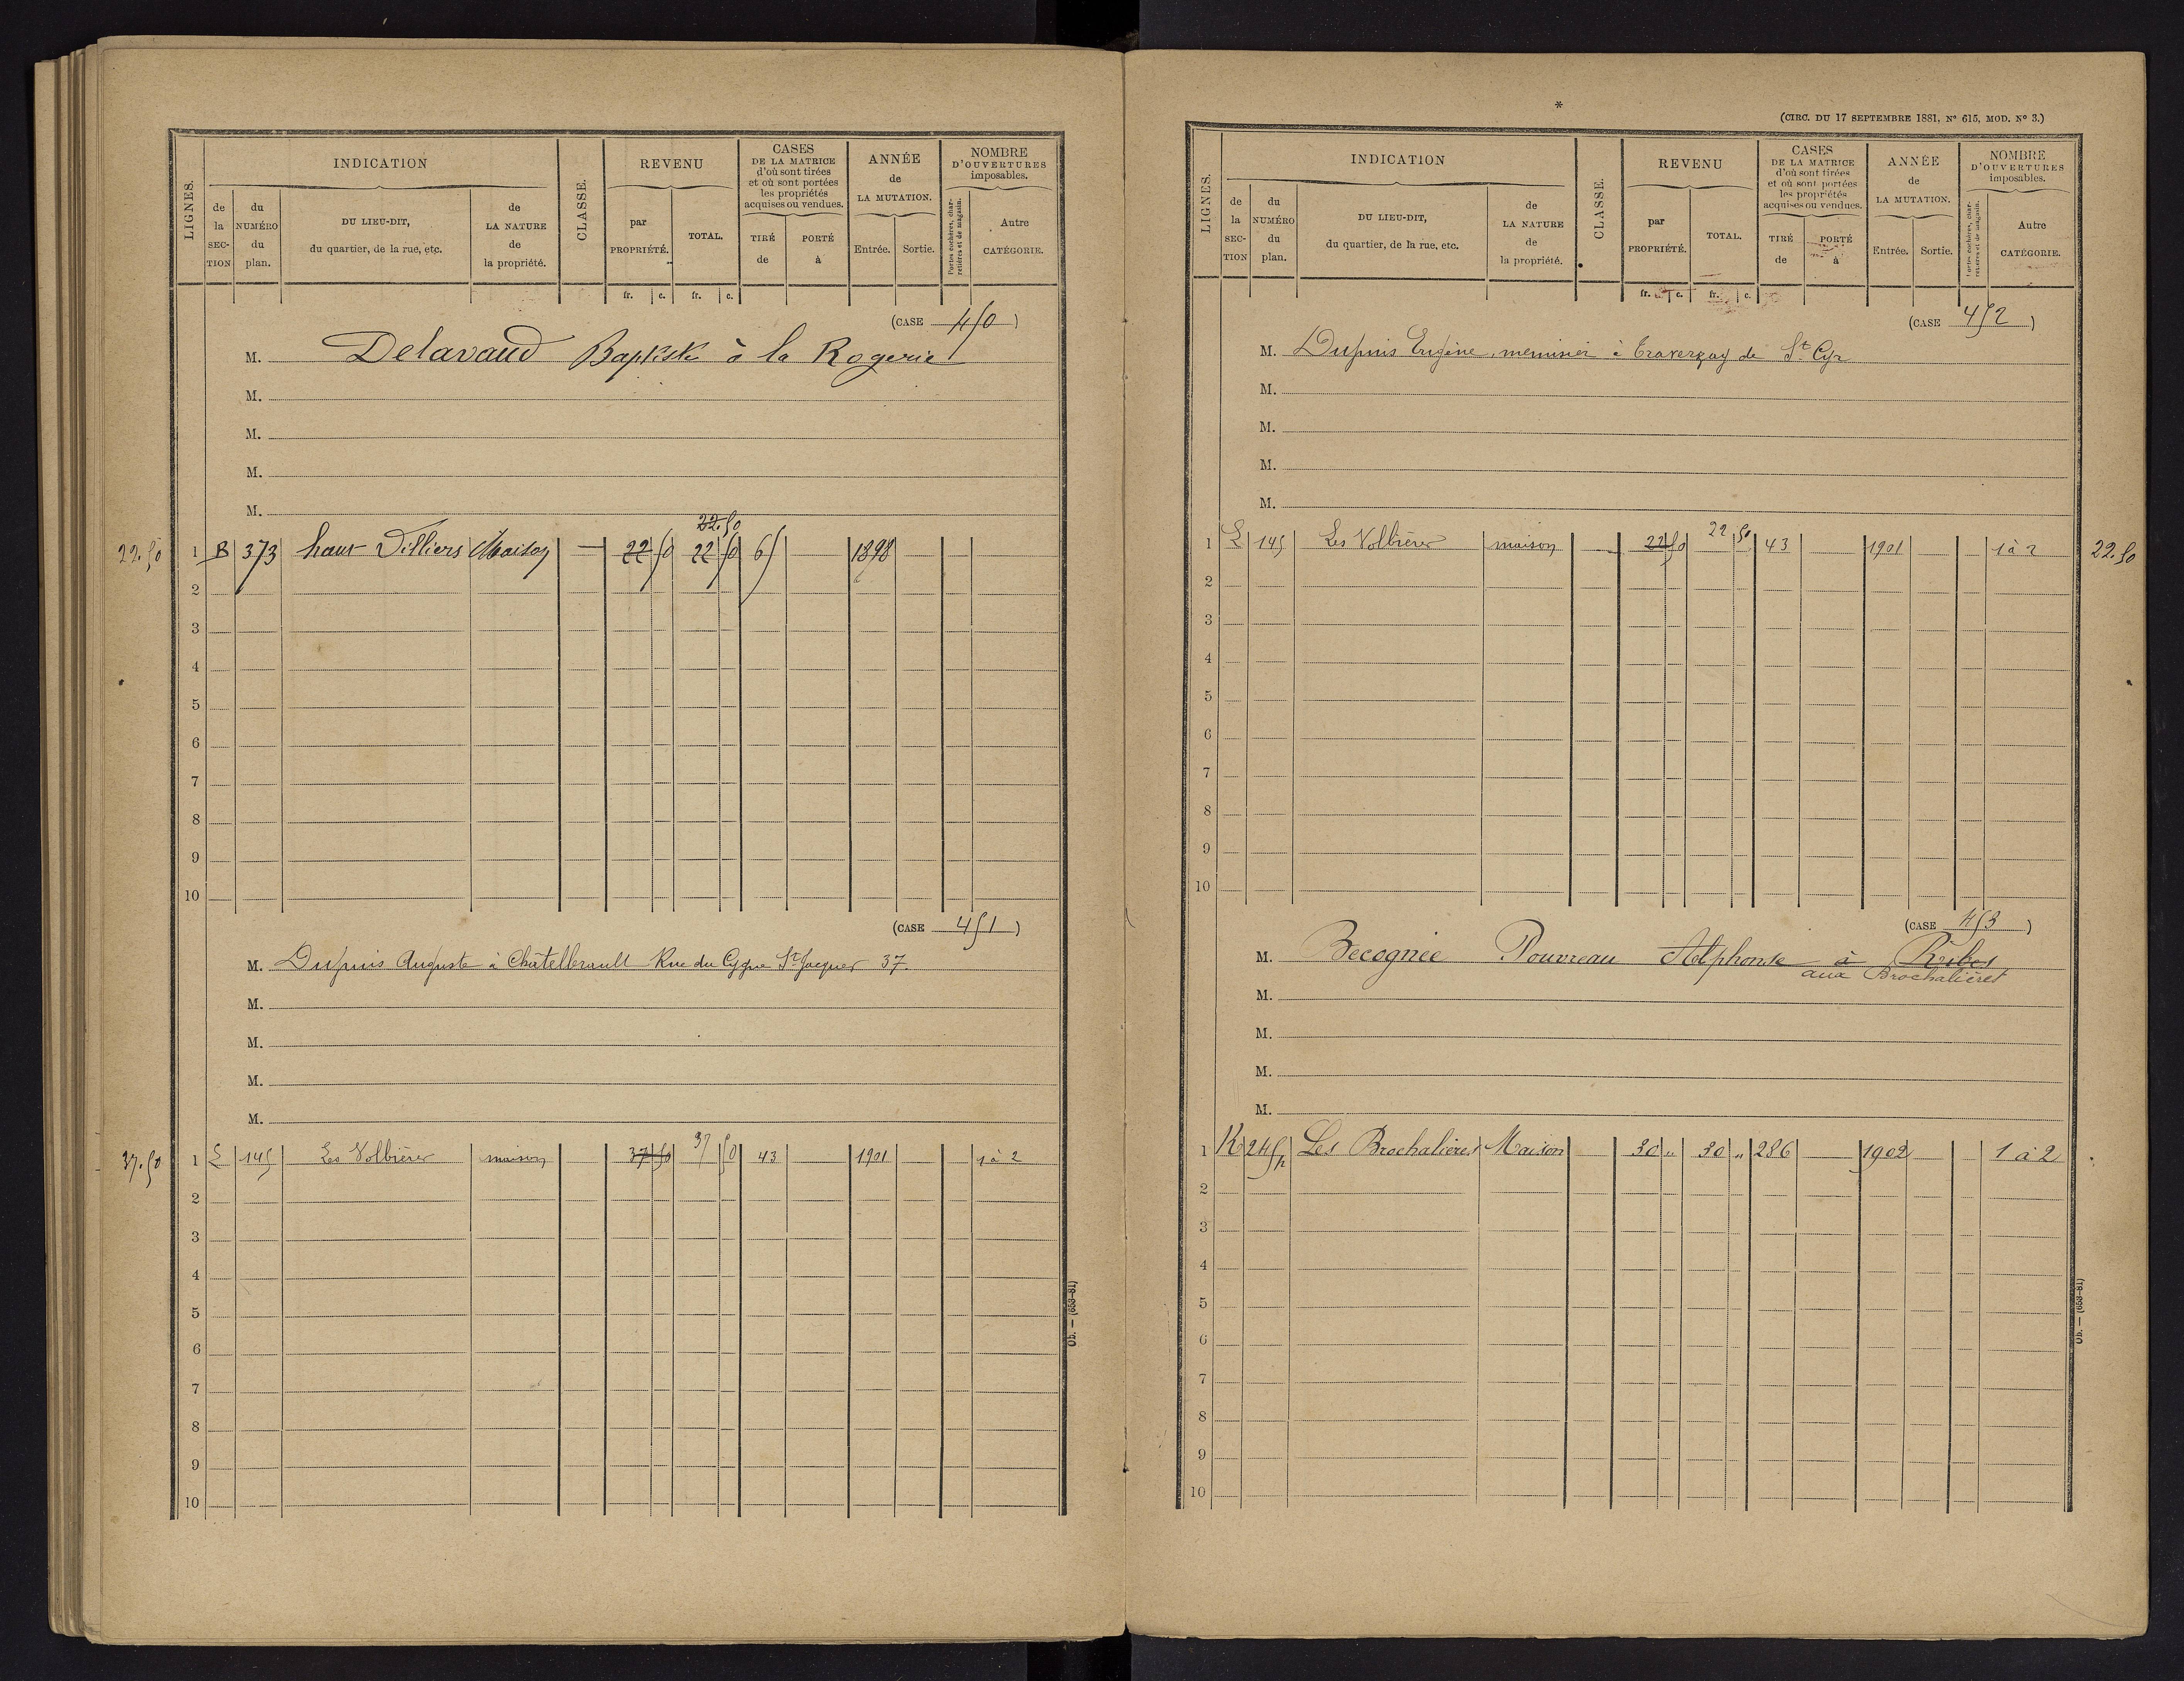 LIGNES.
INDICATION
de la SECTION
du NUMÉRO du plan.
DU LIEU-DIT, du quartier, de la rue, etc.
de LA NATURE de la propriété.
CLASSE.
REVENU
par PROPRIÉTÉ.
TOTAL.
CASES DE LA MATRICE d'où sont tirées et où sont portées les propriétés acquises ou vendues.
TIRÉ de
PORTÉ à
ANNÉE de LA MUTATION.
Entrée.
Sortie.
NOMBRE D'OUVERTURES imposables.
Portes cochères, charretières et de magasin.
Autre CATÉGORIE.
fr. c. fr. c.
(CASE 450)
M. Delavaud Baptiste à la Rogerie
M.
M.
M.
M.
22.50
22.50 1 B 373 haut Villiers Maison — 22 50 22 50 65 1898
2
3
4
5
6
7
8
9
10
(CASE 451)
M. Dupuis Auguste à Châtellerault Rue du Cygne St Jacques 37.
M.
M.
M.
M.
37.50 1 E 145 Les Volbières maison 37 50 37 50 43 1901 1 à 2
2
3
4
5
6
7
8
9
10
Ob. — (653-81)
*
(CIRC. DU 17 SEPTEMBRE 1881, N° 615, MOD. N° 3.)
LIGNES.
INDICATION
de la SECTION
du NUMÉRO du plan.
DU LIEU-DIT, du quartier, de la rue, etc.
de LA NATURE de la propriété.
CLASSE.
REVENU
par PROPRIÉTÉ.
TOTAL.
CASES DE LA MATRICE d'où sont tirées et où sont portées les propriétés acquises ou vendues.
TIRÉ de
PORTÉ à
ANNÉE de LA MUTATION.
Entrée.
Sortie.
NOMBRE D'OUVERTURES imposables.
Portes cochères, charretières et de magasin.
Autre CATÉGORIE.
fr. c. fr. c.
(CASE 452)
M. Dupuis Eugène, menuisier à Traversay de St Cyr
M.
M.
M.
M.
1 E 145 Les Volbières maison 22 50 22 50 43 1901 1 à 2 22.50
2
3
4
5
6
7
8
9
10
(CASE 453)
M. Becognée Pouvreau Alphonse à Ribes
aux Brochalières
M.
M.
M.
M.
1 K 245 Les Brochalières Maison 30 " 30 " 286 1902 1 à 2
2
3
4
5
6
7
8
9
10
Ob. — (653-81)